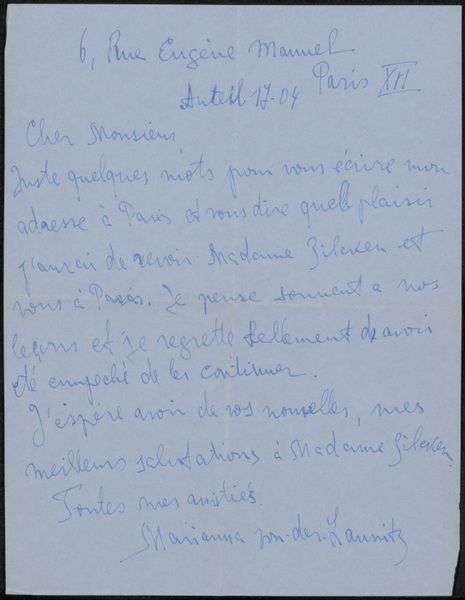 6, Rue Eugène Manuel
Paris XVI
Auteil 17-04
Cher Monsieur,
Juste quelques mots pour vous écrire mon
adresse à Paris et vous dire quelle plaisir
j'aurai de revoir Madame Zilcken et
vous à Paris. Je pense souvent a nos
leçons et je regrette tellement de avoir
été empeché de les continuer.
J'éspère avoir de vos nouvelles, mes
meilleurs salutations à Madame Zilcken.
Toutes mes amitiés
Marianna von-der-Launitz